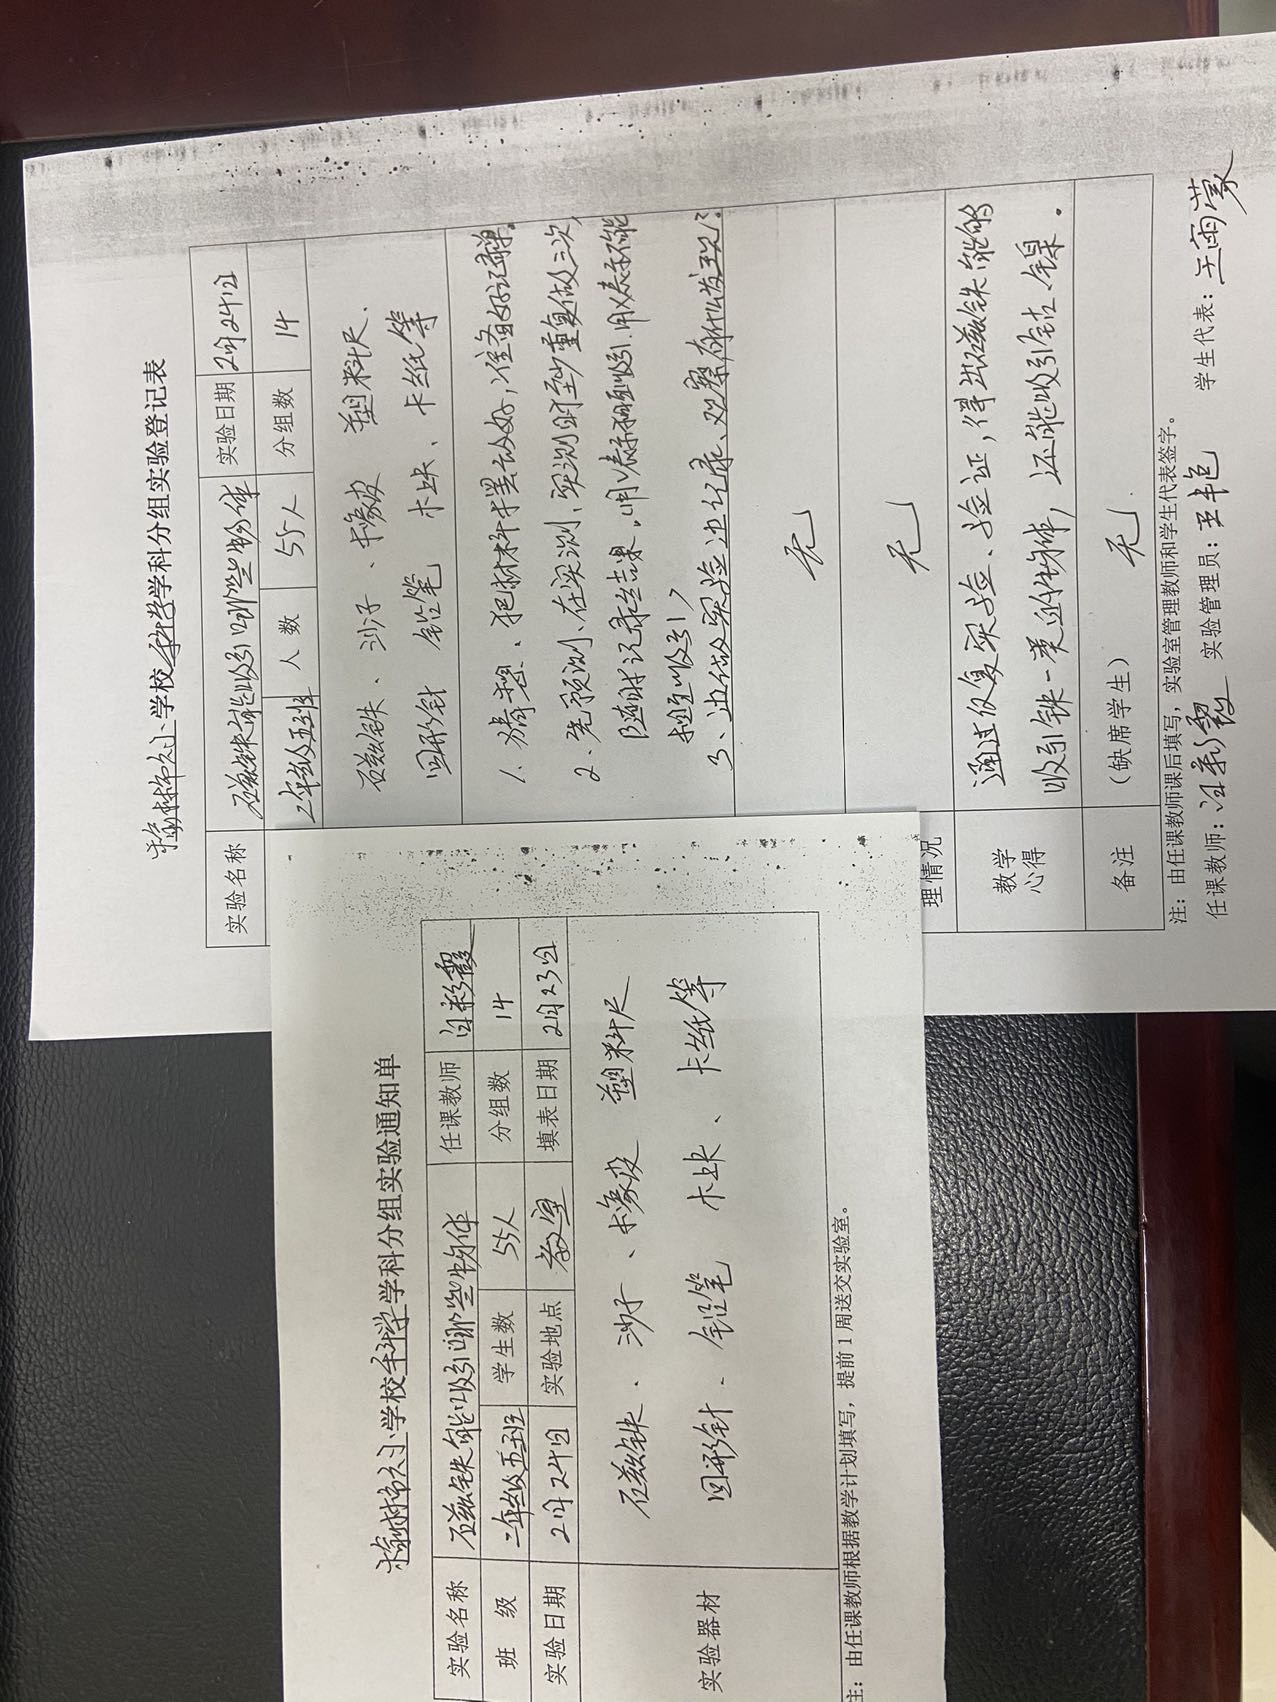 榆林市六小学校科学学科分组实验登记表
实验名称 石磁铁能吸引哪些物体 实验日期 2月24日
二年级五班 人数 55人 分组数 14
石磁铁、沙子、卡橡皮 塑料尺、
回形针 铅笔 木块、卡纸等
1. 猜想、把材料摆放好，准备好记录单。
2. 先预测、在实测、实测时至少重复做三次,
随时记录结果,
3、边做实验边记录、观察有什么发现?
无
无
理情况
教学心得 通过反复实验、验证，得出石磁铁能够
吸引铁一类的物体，还能吸引钴、镍.
备注 (缺席学生) 无.
注：由任课教师课后填写，实验室管理教师和学生代表签字。
任课教师: 实验管理员: 王艳 学生代表: 王雨蒙
榆林市六小学校科学学科分组实验通知单
实验名称 石磁铁能吸引哪些物体 任课教师
班级 二年级五班 学生数 55人 分组数 14
实验日期 2月24日 实验地点 教室 填表日期 2月23日
实验器材 石磁铁、沙子、卡橡皮 塑料尺
回形针、铅笔 木块、卡纸等
注：由任课教师根据教学计划填写，提前1周送交实验室。